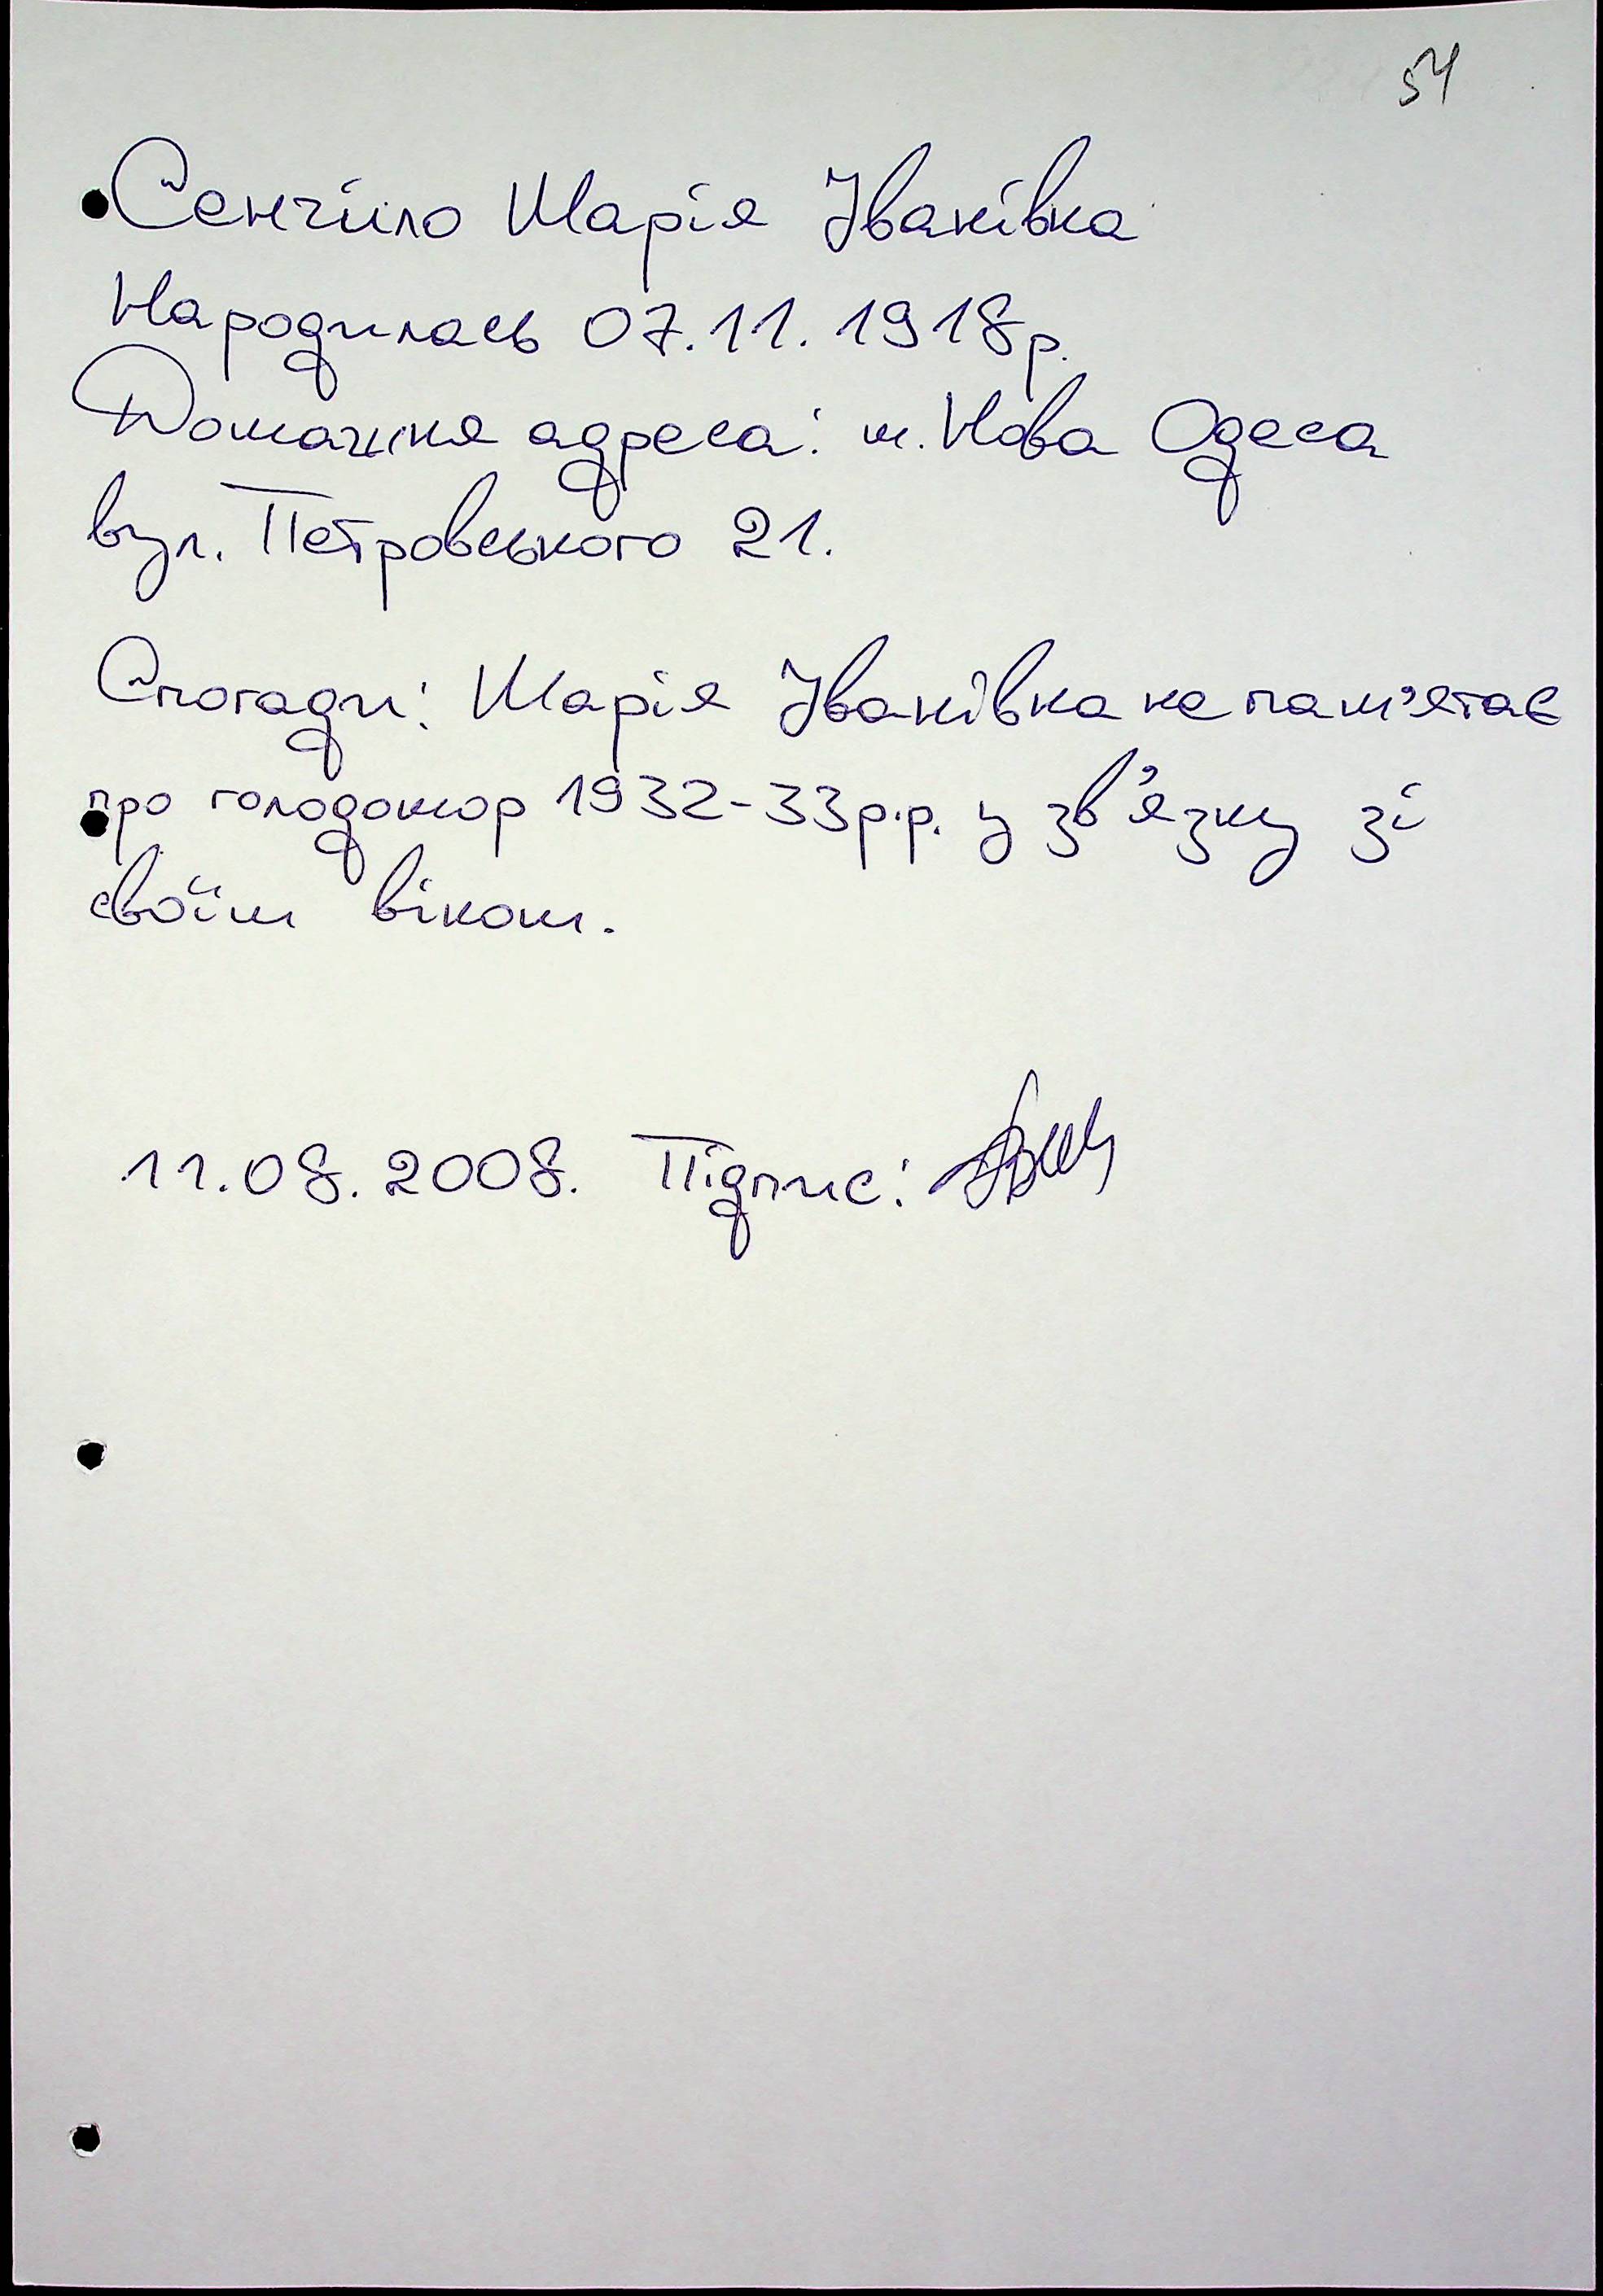 54
Сенчило Марія Іванівна
Народилась 07.11.1918р.
Домашня адреса: м. Нова Одеса
вул. Петровського 21.
Спогади: Марія Іванівна не пам'ятає
про голодомор 1932-33р.р. у зв'язку зі
своїм віком.
11.08.2008. Підпис: